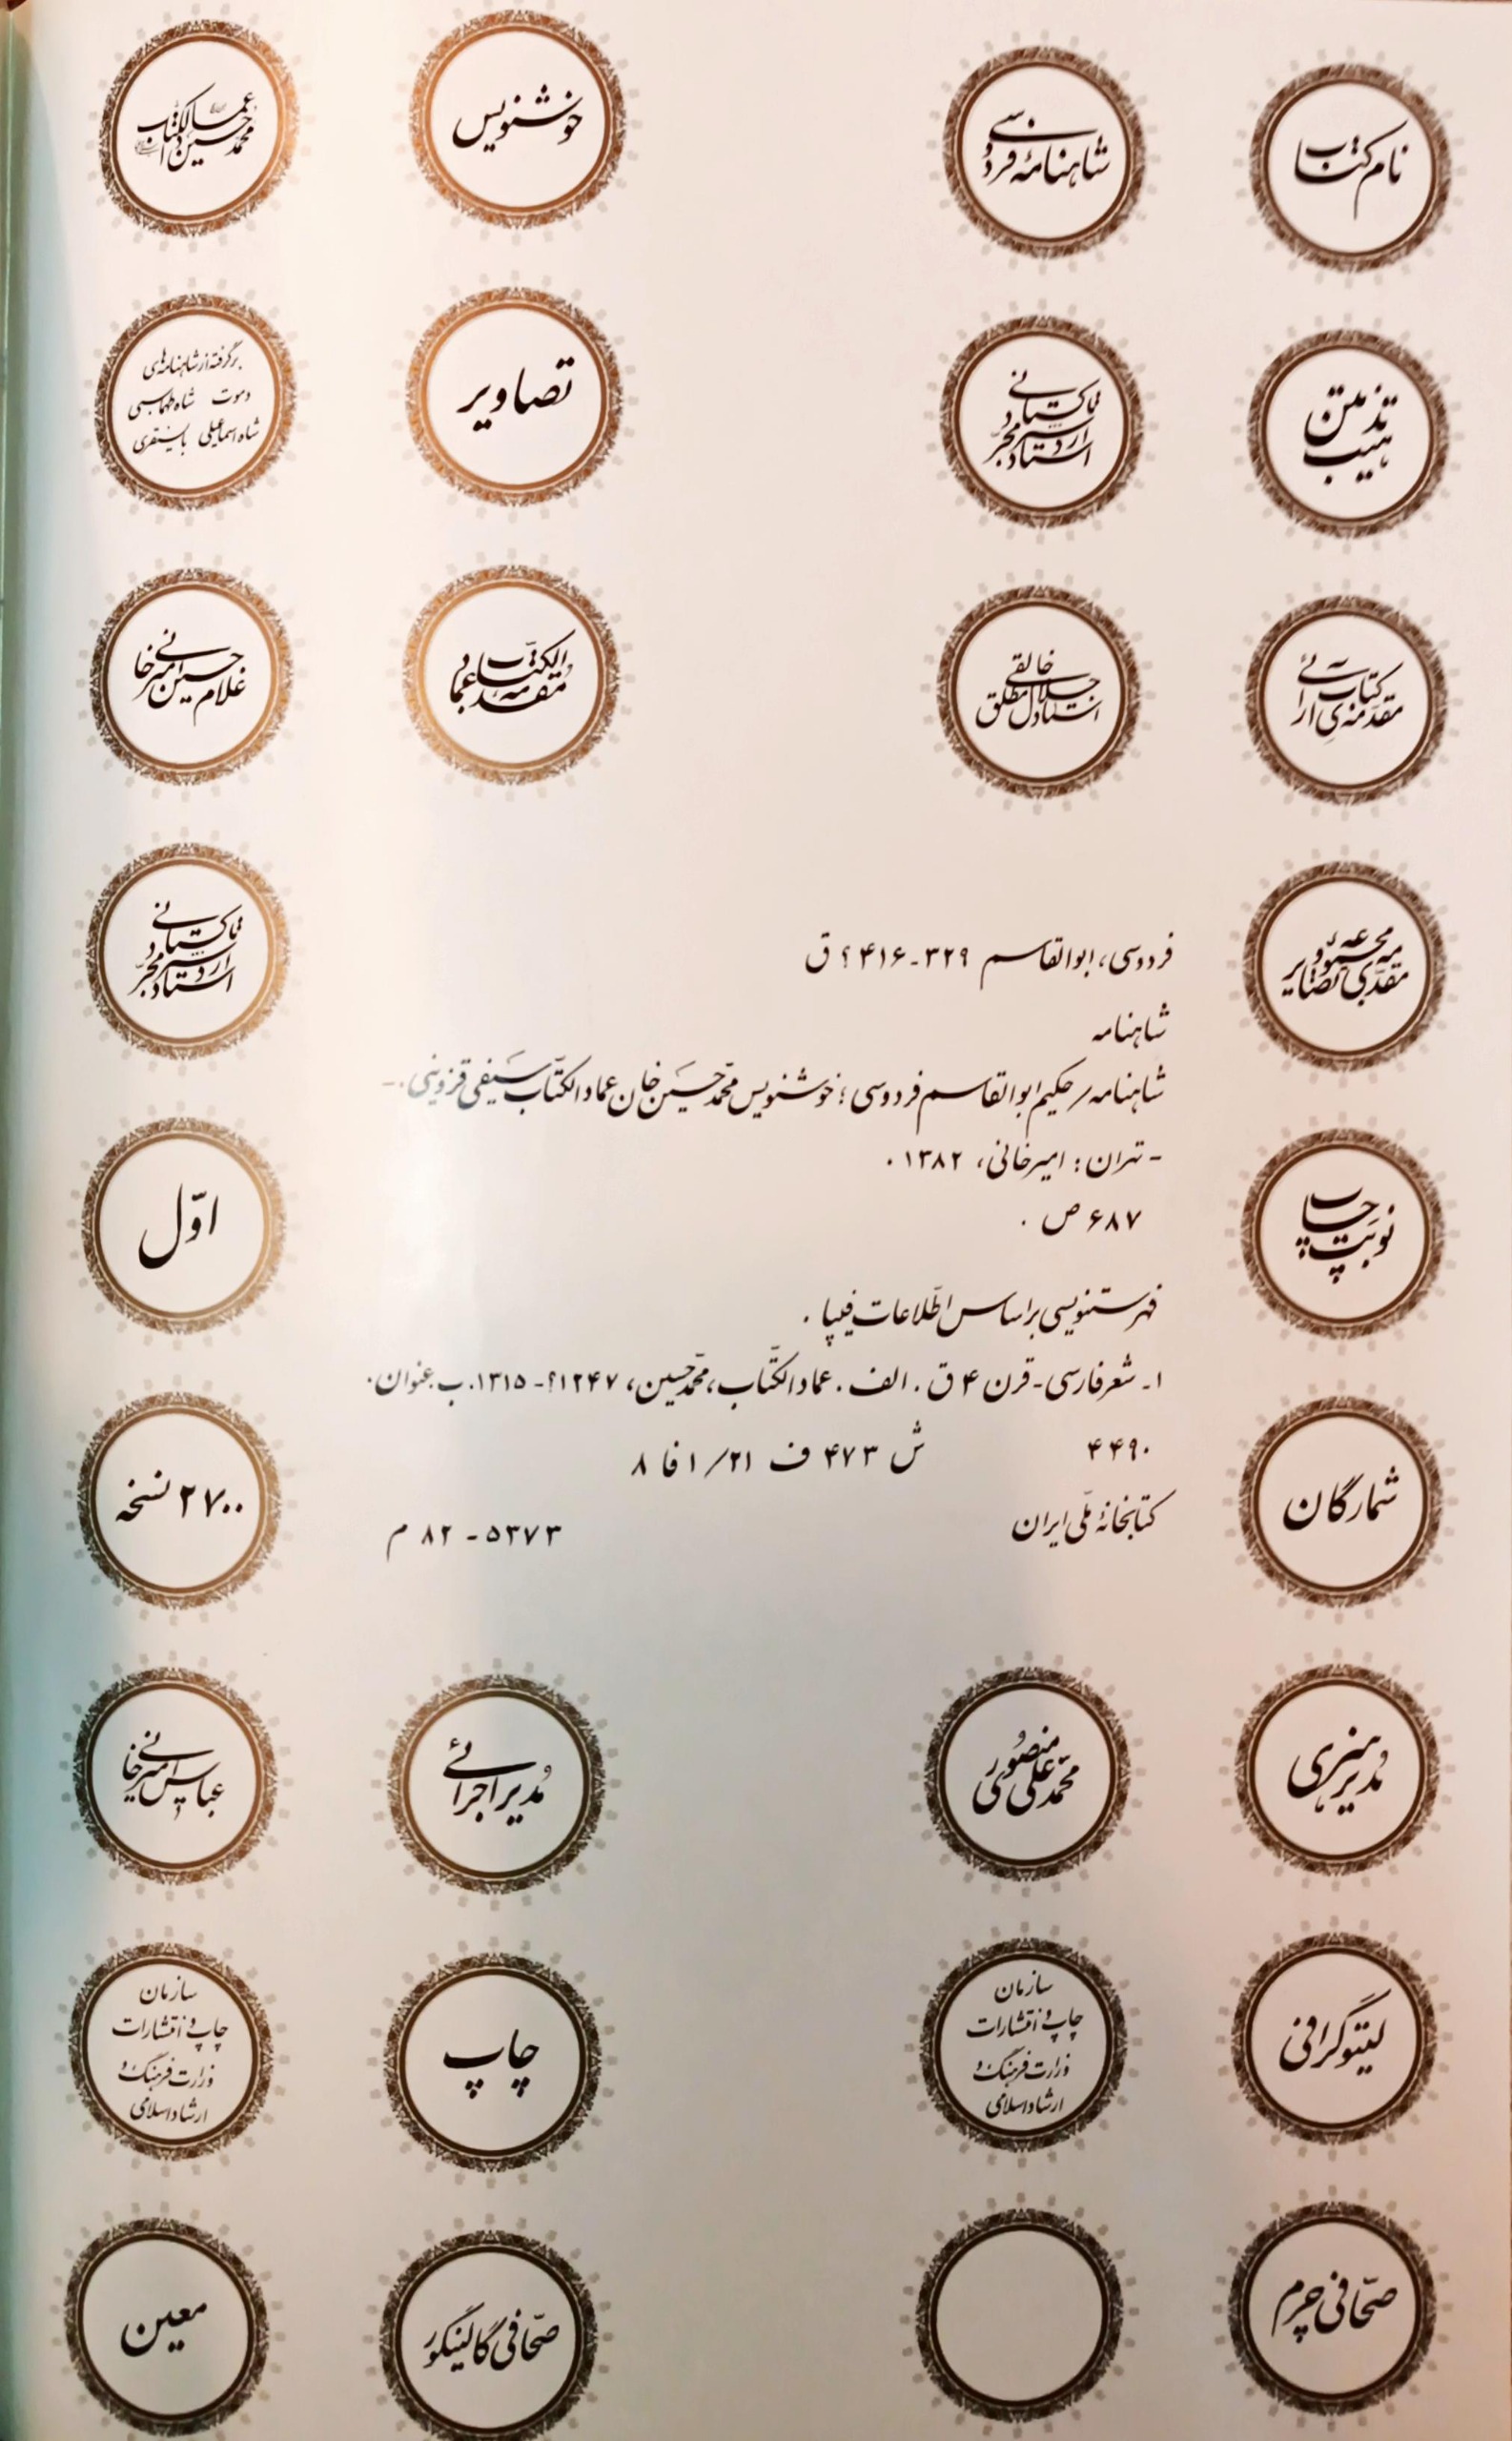 نام کتاب
شاهنامهٔ فردوسی
خوشنویس
محمد حسین عماد الکتاب
تذهیب متن
استاد اردشیر مجرد تاکستانی
تصاویر
برگرفته از شاهنامه‌های
دموت شاه طهماسبی
شاه اسماعیلی بایسنقری
مقدمه‌ی کتاب آرائی
استاد جلال خالقی مطلق
مقدمه عماد الکتاب
غلامحسین امیرخانی
مقدمه‌ی مجموعه تصاویر
استاد اردشیر مجرد تاکستانی
فردوسی، ابوالقاسم ۳۲۹-۴۱۶؟ ق
شاهنامه
شاهنامه / حکیم ابوالقاسم فردوسی؛ خوشنویس محمّد حسین خان عماد الکتّاب سیفی قزوینی.-
- تهران: امیرخانی، ۱۳۸۲.
۶۸۷ ص.
فهرستنویسی بر اساس اطّلاعات فیپا.
۱- شعر فارسی-قرن ۴ ق. الف. عماد الکتّاب، محمّد حسین، ۱۲۴۷؟-۱۳۱۵. ب. عنوان.
۴۴۹۰ ش ۴۷۳ ف ۱/۲۱ فا ۸
کتابخانهٔ ملّی ایران ۵۳۷۳-۸۲ م
نوبت چاپ
اوّل
شمارگان
۲۷۰۰ نسخه
مُدیر هنری
محمّد علی منصوری
مُدیر اجرائی
عباس امیرخانی
لیتوگرافی
سازمان
چاپ و انتشارات
وزارت فرهنگ و
ارشاد اسلامی
چاپ
سازمان
چاپ و انتشارات
وزارت فرهنگ و
ارشاد اسلامی
صحّافی چرم
صحّافی گالینگور
معین